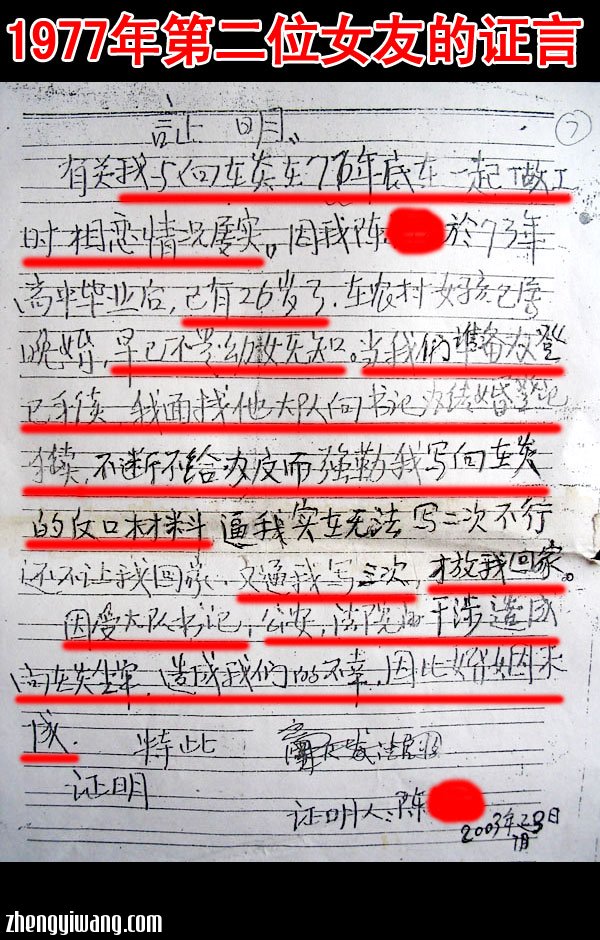 1977年第二位女友的证言
证明
7
有关我与向在炎在76年底在一起做工
时相恋情况属实。因我陈 於73年
高中毕业后,已有26岁了.在农村女孩已属
晚婚,早已不是幼女无知。当我们准备办登
记手续,我面找他大队向书记办结婚登记
手续,不断不给办反而强勒我写向在炎
的反口材料 逼我实在无法 写二次不行
还不让我回家,又逼我写三次,才放我回家。
因受大队书记,公安,法院 干涉造成
向在炎坐牢,造成我们的不幸,因此婚姻未
成.
特此
证明
证明人:陈
2003年7月23日
zhengyiwang.com